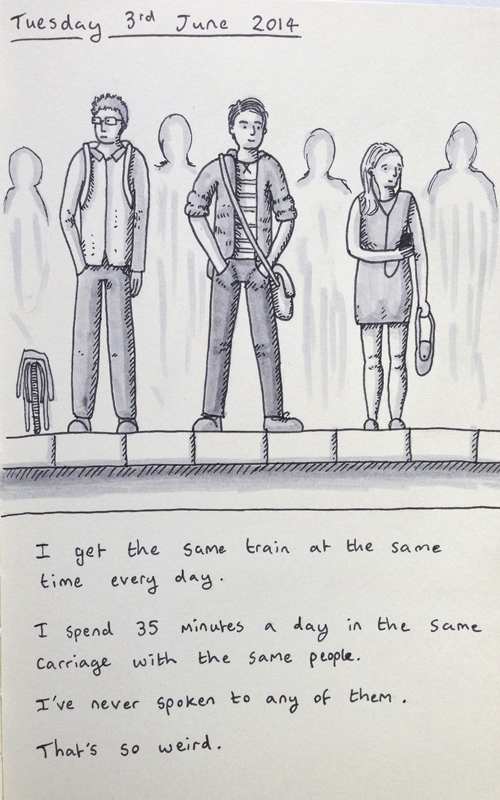 Tuesday 3rd June 2014
I get the same train at the same
time every day.
I spend 35 minutes a day in the same
carriage with the same people.
I've never spoken to any of them.
That's so weird.